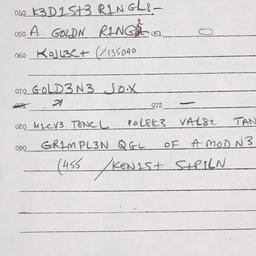 040 K3D1ST3 R1NGL8-
050 A GOLDN R1NG 051
060 KOJL3C+ (/135040
070 GOLD3N3 JOX
072 —
080 M1CV3 TENCL POL8K3 VAL8C TAN
090 GR1MPL3N QGL OF A MOD N3
(455 /KEN1S+ S+P1LN